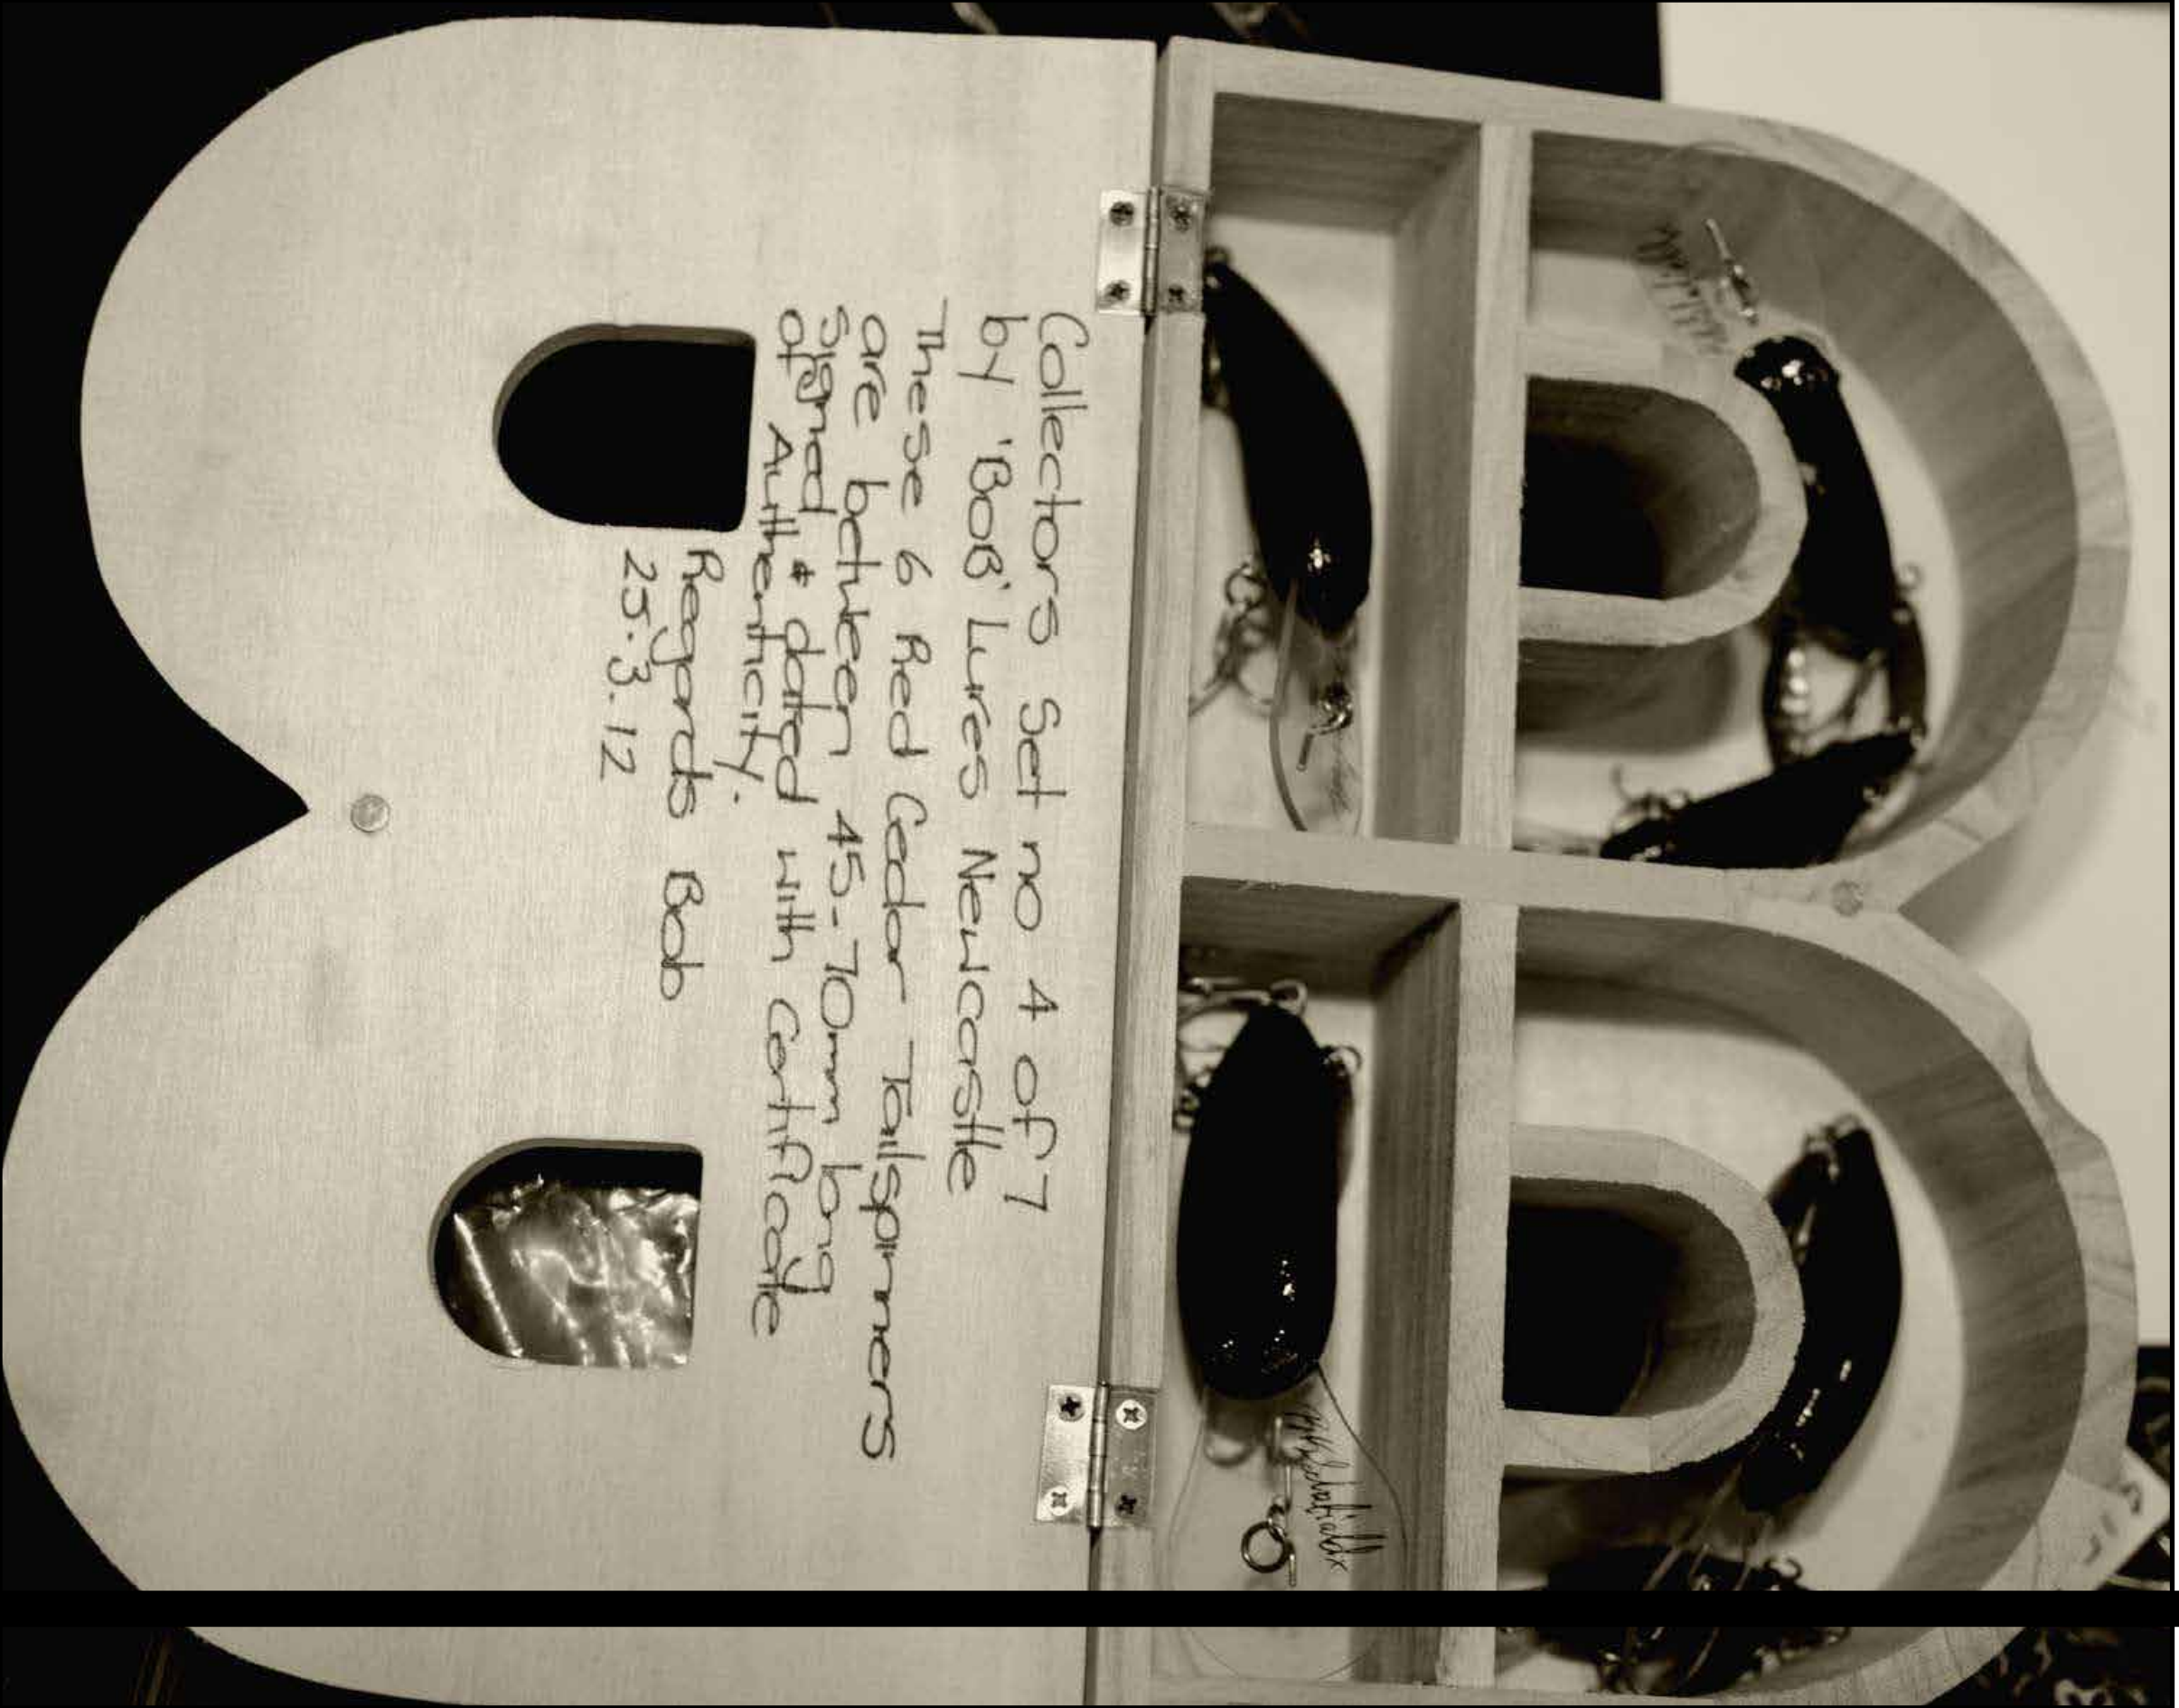 Collectors Set no 4 of 7
by 'BOB' Lures Newcastle
These 6 Red Cedar Tailspinners
are between 45-70mm long
signed & dated with Certificate
of Authenticity.
Regards Bob
25.3.12